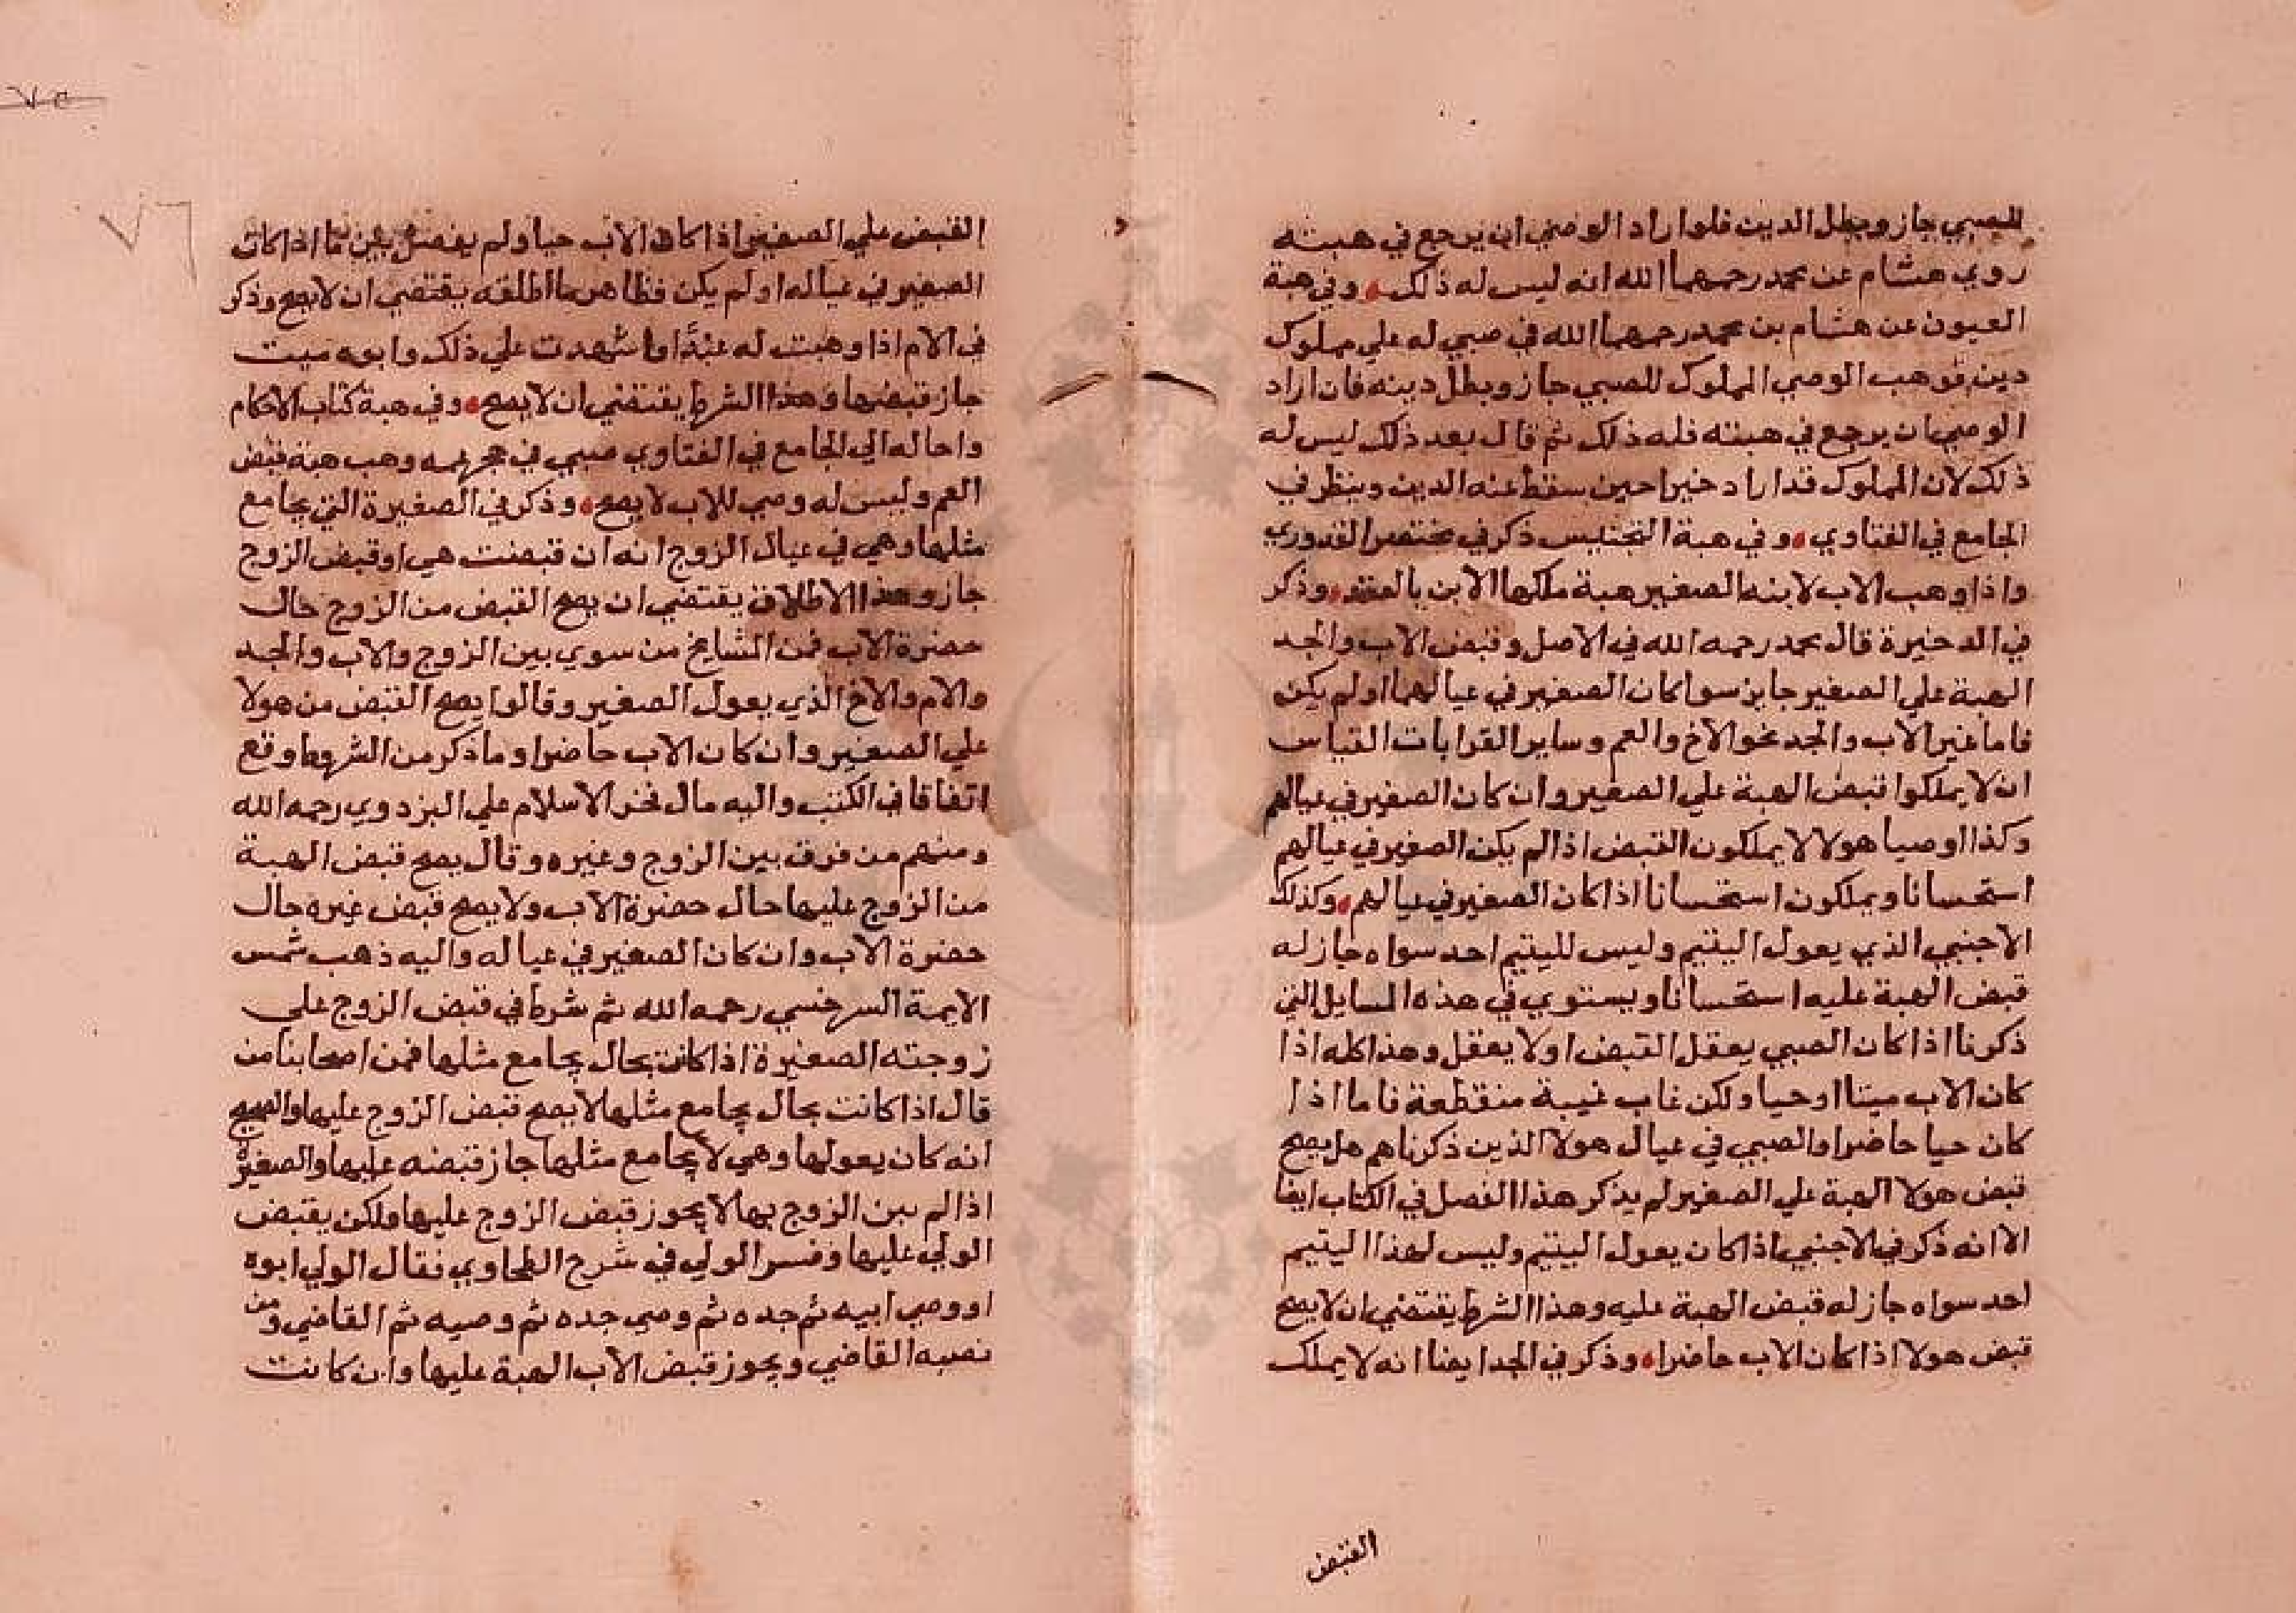 للصبي جاز وبطل الدين فلو اراد الوصي ان يرجع في هبته
روي هشام عن محمد رحمهما الله انه ليس له ذلك وفي هبة
العيون عن هشام بن محمد رحمهما الله في صبي له علي مملوك
دين فوهب الوصي المملوك للصبي جاز وبطل دينه فان اراد
الوصي ان يرجع في هبته فله ذلك ثم قال بعد ذلك ليس له
ذلك لان المملوك قد ازاد خيرا حين سقط عنه الدين وينظر في
الجامع في الفتاوي وفي هبة التجنيس ذكر في مختصر القدوري
واذا وهب الاب لابنه الصغير هبة ملكها الابن بالعقد وذكر
في الدخيرة قال محمد رحمه الله في الاصل وقبض الاب والجد
الهبة علي الصغير جايز سوا كان الصغير في عيالهما او لم يكن
فاما غير الاب والجد نحو الاخ والعم وساير القرابات القياس
ان لا يملكوا قبض الهبة علي الصغير وان كان الصغير في عيالهم
وكذا اوصيا هولا لا يملكون القبض اذا لم يكن الصغير في عيالهم
استحسانا ويملكون استحسانا اذا كان الصغير في عيالهم وكذلك
الاجنبي الذي يعول اليتيم وليس لليتيم احد سواه جاز له
قبض الهبة عليه استحسانا ويستوي في هذه المسايل التي
ذكرنا اذا كان الصبي يعقل القبض او لا يعقل وهذا كله اذا
كان الاب ميتا او حيا ولكن غاب غيبة منقطعة فاما اذا
كان حيا حاضرا والصبي في عيال هولا الذين ذكرناهم هل يصح
قبض هولا الهبة علي الصغير لم يذكر هذا الفصل في الكتاب ايضا
الا انه ذكر في الاجنبي اذا كان يعول اليتيم وليس لهذا اليتيم
احد سواه جاز له قبض الهبة عليه وهذا الشرط يقتضي ان لا يصح
قبض هولا اذا كان الاب حاضرا وذكر في الجد ايضا انه لا يملك
القبض
القبض علي الصغير اذا كان الاب حيا ولم يفصل بين ما اذا كان
الصغير في عياله او لم يكن فظاهر ما اطلقه يقتضي ان لا يصح وذكر
في الام اذا وهبت له عبدا واشهدت علي ذلك وابوه ميت
جاز قبضها وهذا الشرط يقتضي ان لا يصح وفي هبة كتاب الاحكام
واحاله الي الجامع في الفتاوي صبي في حجر عمه وهب هبة فقبض
العم وليس له وصي للاب لا يصح وذكر في الصغيرة التي يجامع
مثلها وهي في عيال الزوج انه ان قبضت هي او قبض الزوج
جاز وهذا الاطلاق يقتضي ان يصح القبض من الزوج حال
حضرة الاب فمن المشايخ من سوي بين الزوج والاب والجد
والام والاخ الذي يعول الصغير وقالوا يصح القبض من هولا
علي الصغير وان كان الاب حاضرا وما ذكر من الشروط وقع
اتفاقا في الكتب واليه مال فخر الاسلام علي البزدوي رحمه الله
ومنهم من فرق بين الزوج وغيره وقال يصح قبض الهبة
من الزوج عليها حال حضرة الاب ولا يصح قبض غيره حال
حضرة الاب وان كان الصغير في عياله واليه ذهب شمس
الايمة السرخسي رحمه الله ثم شرط في قبض الزوج علي
زوجته الصغيرة اذا كانت بحال يجامع مثلها فمن اصحابنا من
قال اذا كانت بحال يجامع مثلها لا يصح قبض الزوج عليها والصحيح
انه كان يعولها وهي لا يجامع مثلها جاز قبضه عليها والصغيرة
اذا لم يبن الزوج بها لا يجوز قبض الزوج عليها ولكن يقبض
الولي عليها وفسر الولي في شرح الطحاوي فقال الولي ابوه
او وصي ابيه ثم جده ثم وصي جده ثم وصيه ثم القاضي ومن
نصبه القاضي ويجوز قبض الاب الهبة عليها وان كانت
٧٦